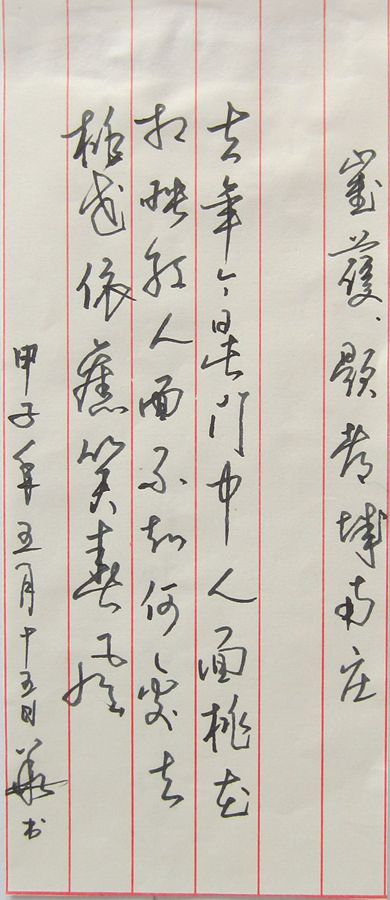 崔護·題都城南庄
去年今日此门中人面桃花
相映红人面不知何處去
桃花依舊笑春风
甲子年五月十五日華书